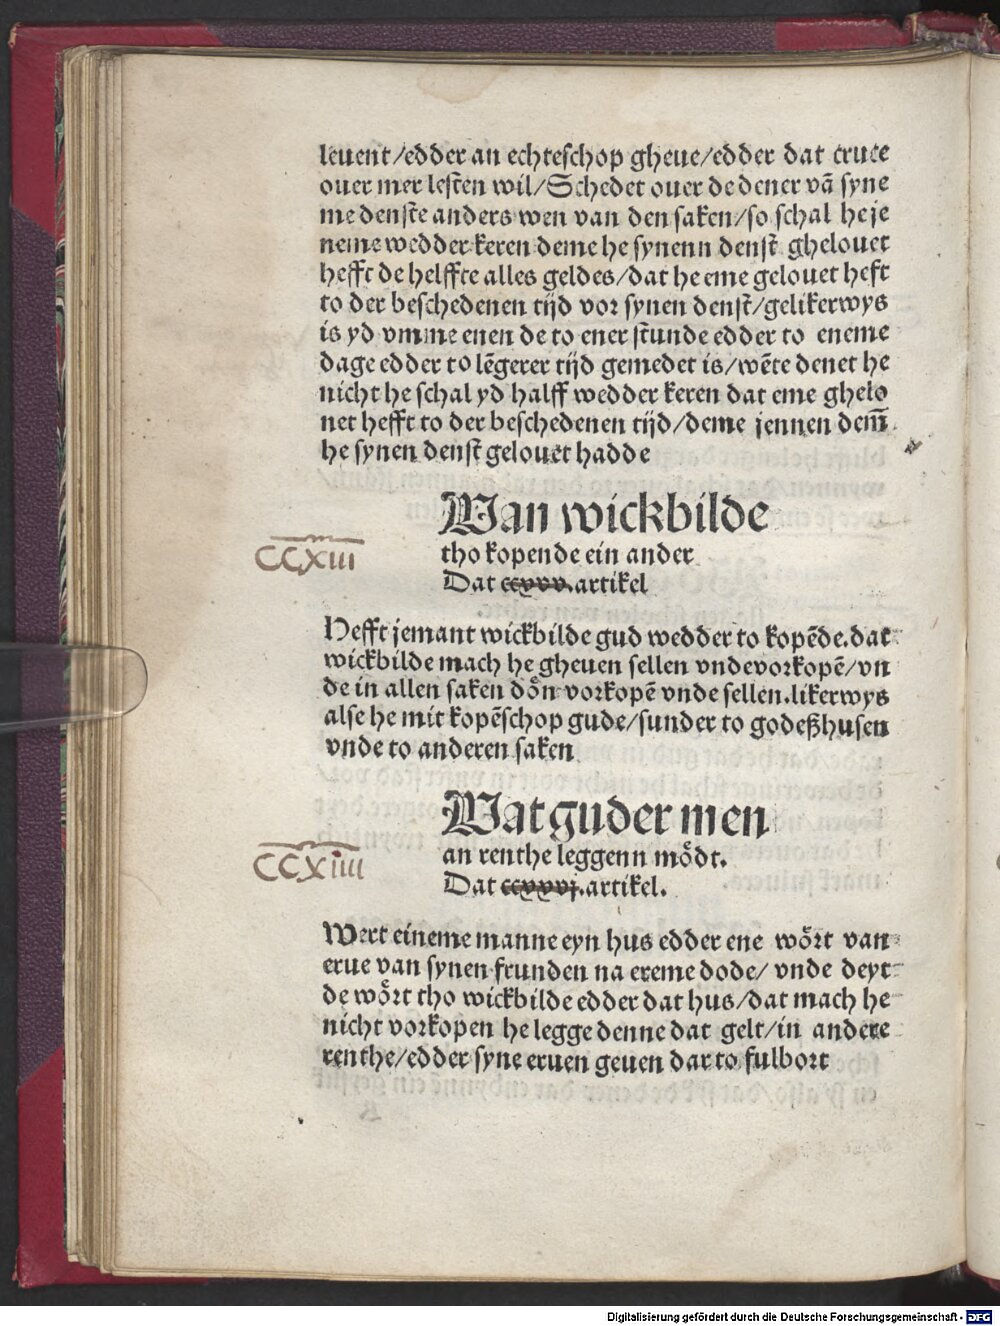 leuent/edder an echteschop gheue/edder dat cruce
ouer mer lesten wil/Schedet ouer de dener vā syne
me denste anders wen van den saken/so schal he je
neme wedder keren deme he synenn denst ghelouet
hefft de helffte alles geldes/dat he eme gelouet heft
to der beschedenen tijd vor synen denst/gelikerwys
is yd vmme enen de to ener stunde edder to eneme
dage edder to lēgerer tijd gemedet is/wēte denet he
nicht he schal yd halff wedder keren dat eme ghelo
uet hefft to der beschedenen tijd/deme jennen dem̄
he synen denst gelouet hadde
Van wickbilde
CCXIII
tho kopende ein ander
Dat ccxxv.artikel
Hefft jemant wickbilde gud wedder to kopēde.dat
wickbilde mach he gheuen sellen vnde vorkopē/vn
de in allen saken dōn vorkopē vnde sellen.likerwys
alse he mit kopēschop gude/sunder to godeßhusen
vnde to anderen saken
Wat guder men
CCXIIII
an renthe leggenn mōdt.
Dat ccxxvj.artikel.
Wert eineme manne eyn hus edder ene wōrt van
erue van synen frunden na ereme dode/ vnde deyt
de wōrt tho wickbilde edder dat hus/dat mach he
nicht vorkopen he legge denne dat gelt/in andere
renthe/edder syne eruen geuen dar to fulbort
Digitalisierung gefördert durch die Deutsche Forschungsgemeinschaft - DFG